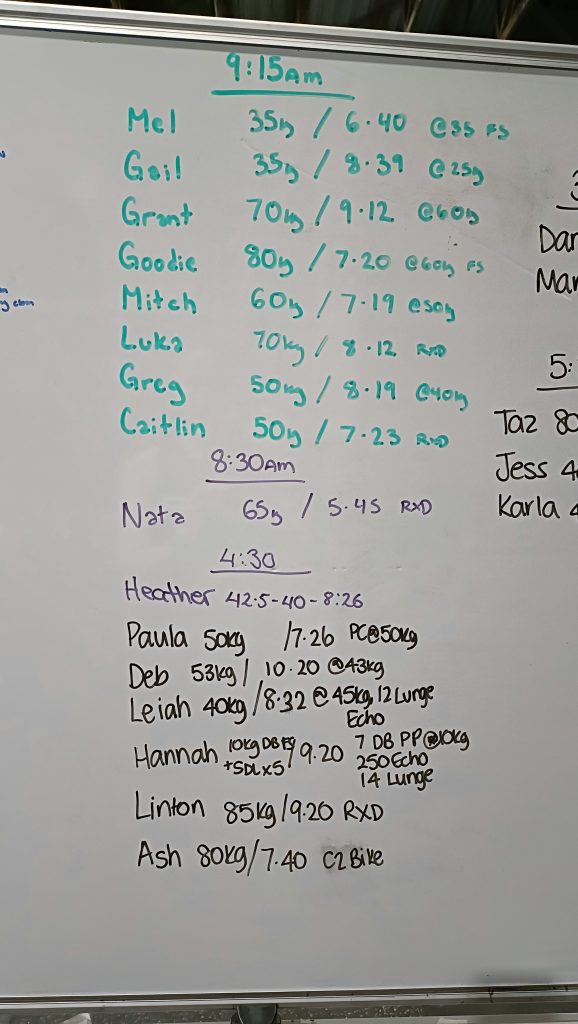 9:15AM
Mel 35kg / 6.40 @35 FS
Gail 35kg / 8.39 @25kg
Grant 70kg / 9.12 @60kg
Goodie 80kg / 7.20 @60kg FS
Mitch 60kg / 7.19 @50kg
Luka 70kg / 8.12 RXD
Greg 50kg / 8.19 @40kg
Caitlin 50kg / 7.23 RXD
8:30AM
Nata 65kg / 5.45 RXD
4:30
Heather 42.5-40-8:26
Paula 50kg /7.26 PC@50kg
Deb 53kg/ 10.20 @43kg
Leiah 40kg/8.32 @45kg, 12 Lunge
Echo
Hannah 10kg DB FS /9.20 7 DB PP@10kg
+SDLx5 250 Echo
14 Lunge
Linton 85kg/9.20 RXD
Ash 80kg/7.40 C2 Bike
3
Dar
Mar
5:
Taz 80
Jess 4
Karla 4